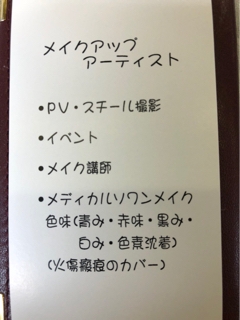 メイクアップ
アーティスト
•PV・スチール撮影
•イベント
•メイク講師
•メディカルソワンメイク
色味(青み・赤味・黒み・
白み・色素沈着)
(火傷瘢痕のカバー)